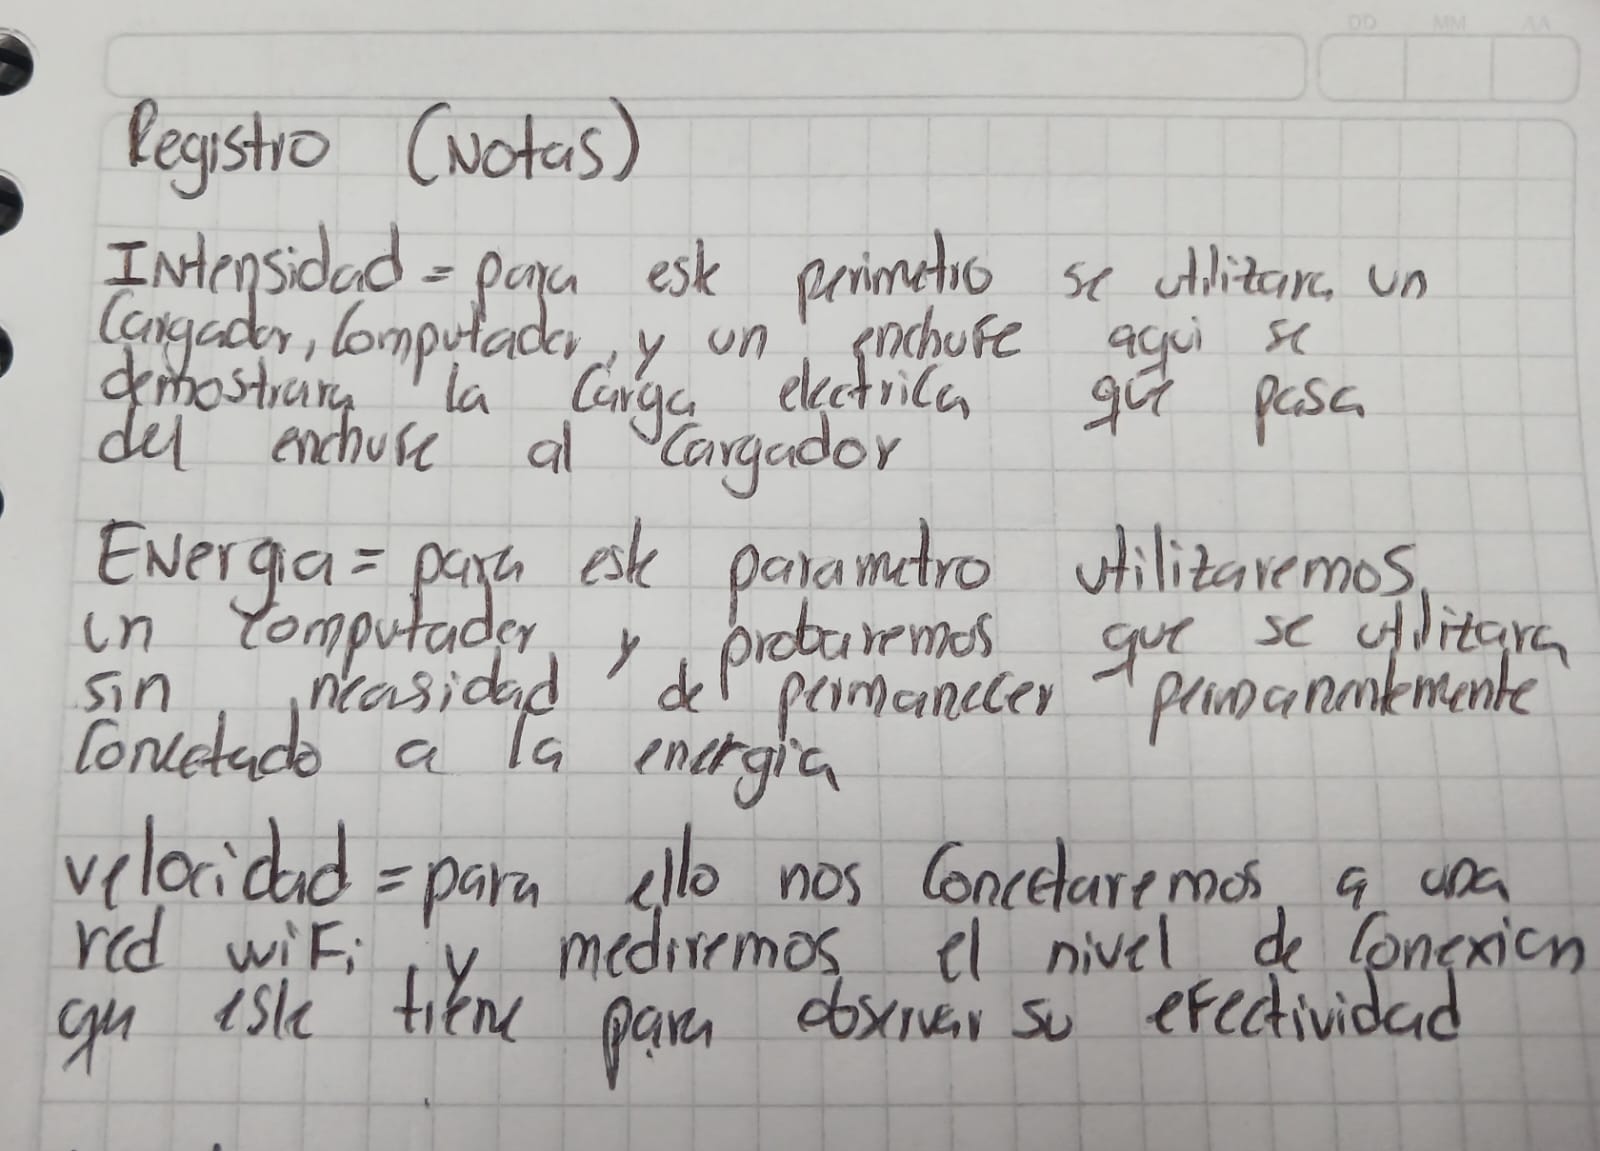 DD MM AA
Registro (Notas)
INtensidad = para este perimetro se utilizara un
Cargador, Computador, y un enchufe aqui se
demostrara la Carga electrica que pasa
del enchufe al Cargador
ENergia = para este parametro utilizaremos
un Computador y probaremos que se utilizara
sin necesidad de permanecer permanentemente
Conectado a la energia
velocidad = para ello nos Conectaremos a una
red wiFi y mediremos el nivel de Conexion
que este tiene para observar su efectividad